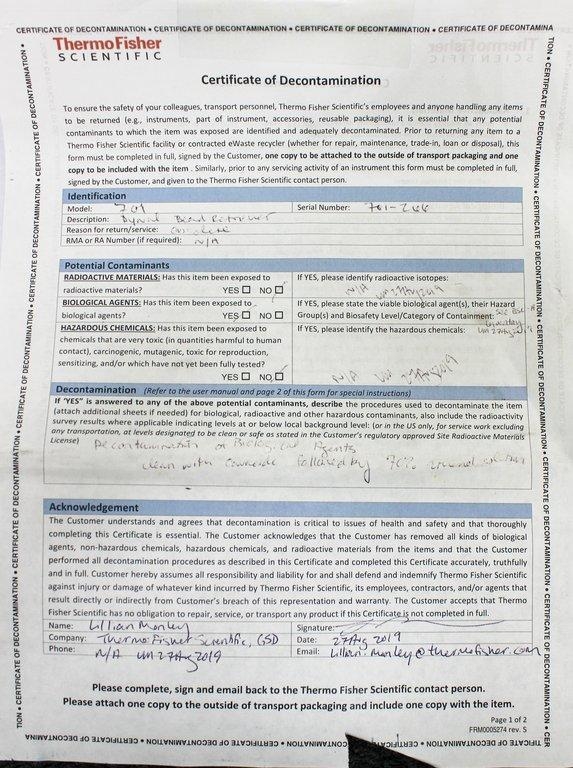 CERTIFICATE OF DECONTAMINATION • CERTIFICATE OF DECONTAMINATION • CERTIFICATE OF DECONTAMINATION • CERTIFICATE OF DECONTAMINA
ThermoFisher
SCIENTIFIC
Certificate of Decontamination
To ensure the safety of your colleagues, transport personnel, Thermo Fisher Scientific's employees and anyone handling any items
to be returned (e.g., instruments, part of instrument, accessories, reusable packaging), it is essential that any potential
contaminants to which the item was exposed are identified and adequately decontaminated. Prior to returning any item to a
Thermo Fisher Scientific facility or contracted eWaste recycler (whether for repair, maintenance, trade-in, loan or disposal), this
form must be completed in full, signed by the Customer, one copy to be attached to the outside of transport packaging and one
copy to be included with the item . Similarly, prior to any servicing activity of an instrument this form must be completed in full,
signed by the Customer, and given to the Thermo Fisher Scientific contact person.
Identification
Model: 701 Serial Number: 701-266
Description: Bead
Reason for return/service:
RMA or RA Number (if required): N/A
Potential Contaminants
RADIOACTIVE MATERIALS: Has this item been exposed to
radioactive materials? YES ☐ NO ☐
If YES, please identify radioactive isotopes:
N/A UM 27Aug2019
BIOLOGICAL AGENTS: Has this item been exposed to
biological agents? YES ☐ NO ☐
If YES, please state the viable biological agent(s), their Hazard
Group(s) and Biosafety Level/Category of Containment:
HAZARDOUS CHEMICALS: Has this item been exposed to
chemicals that are very toxic (in quantities harmful to human
contact), carcinogenic, mutagenic, toxic for reproduction,
sensitizing, and/or which have not yet been fully tested?
YES ☐ NO ☐
If YES, please identify the hazardous chemicals:
N/A UM 27Aug2019
Decontamination (Refer to the user manual and page 2 of this form for special instructions)
If "YES" is answered to any of the above potential contaminants, describe the procedures used to decontaminate the item
(attach additional sheets if needed) for biological, radioactive and other hazardous contaminants, also include the radioactivity
survey results where applicable indicating levels at or below local background level: (or in the US only, for service work excluding
any transportation, at levels designated to be clean or safe as stated in the Customer's regulatory approved Site Radioactive Materials
License)
Decontamination of Biological Agents
clean with followed by 70%
Acknowledgement
The Customer understands and agrees that decontamination is critical to issues of health and safety and that thoroughly
completing this Certificate is essential. The Customer acknowledges that the Customer has removed all kinds of biological
agents, non-hazardous chemicals, hazardous chemicals, and radioactive materials from the items and that the Customer
performed all decontamination procedures as described in this Certificate and completed this Certificate accurately, truthfully
and in full. Customer hereby assumes all responsibility and liability for and shall defend and indemnify Thermo Fisher Scientific
against injury or damage of whatever kind incurred by Thermo Fisher Scientific, its employees, contractors, and/or agents that
result directly or indirectly from Customer's breach of this representation and warranty. The Customer accepts that Thermo
Fisher Scientific has no obligation to repair, service, or transport any product if this Certificate is not completed in full.
Name: Lillian Manley Signature:
Company: Thermo Fisher Scientific, GSD Date: 27Aug2019
Phone: N/A UM 27Aug2019 Email: lillian.manley@thermofisher.com
Please complete, sign and email back to the Thermo Fisher Scientific contact person.
Please attach one copy to the outside of transport packaging and include one copy with the item.
Page 1 of 2
FRM0005274 rev. S
TION • CERTIFICATE OF DECONTAMINATION • CERTIFICATE OF DECONTAMINATION • CERTIFICATE OF DECONTAMINATION • CERTIFICATE OF DECONTAMINATION •
TION • CERTIFICATE OF DECONTAMINATION • CERTIFICATE OF DECONTAMINATION • CERTIFICATE OF DECONTAMINATION • CERTIFICATE OF DECONTAMINATION • CER